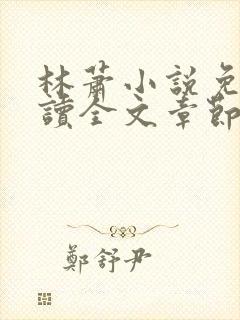 林蕭小説免
讀全文章節
鄭舒尹